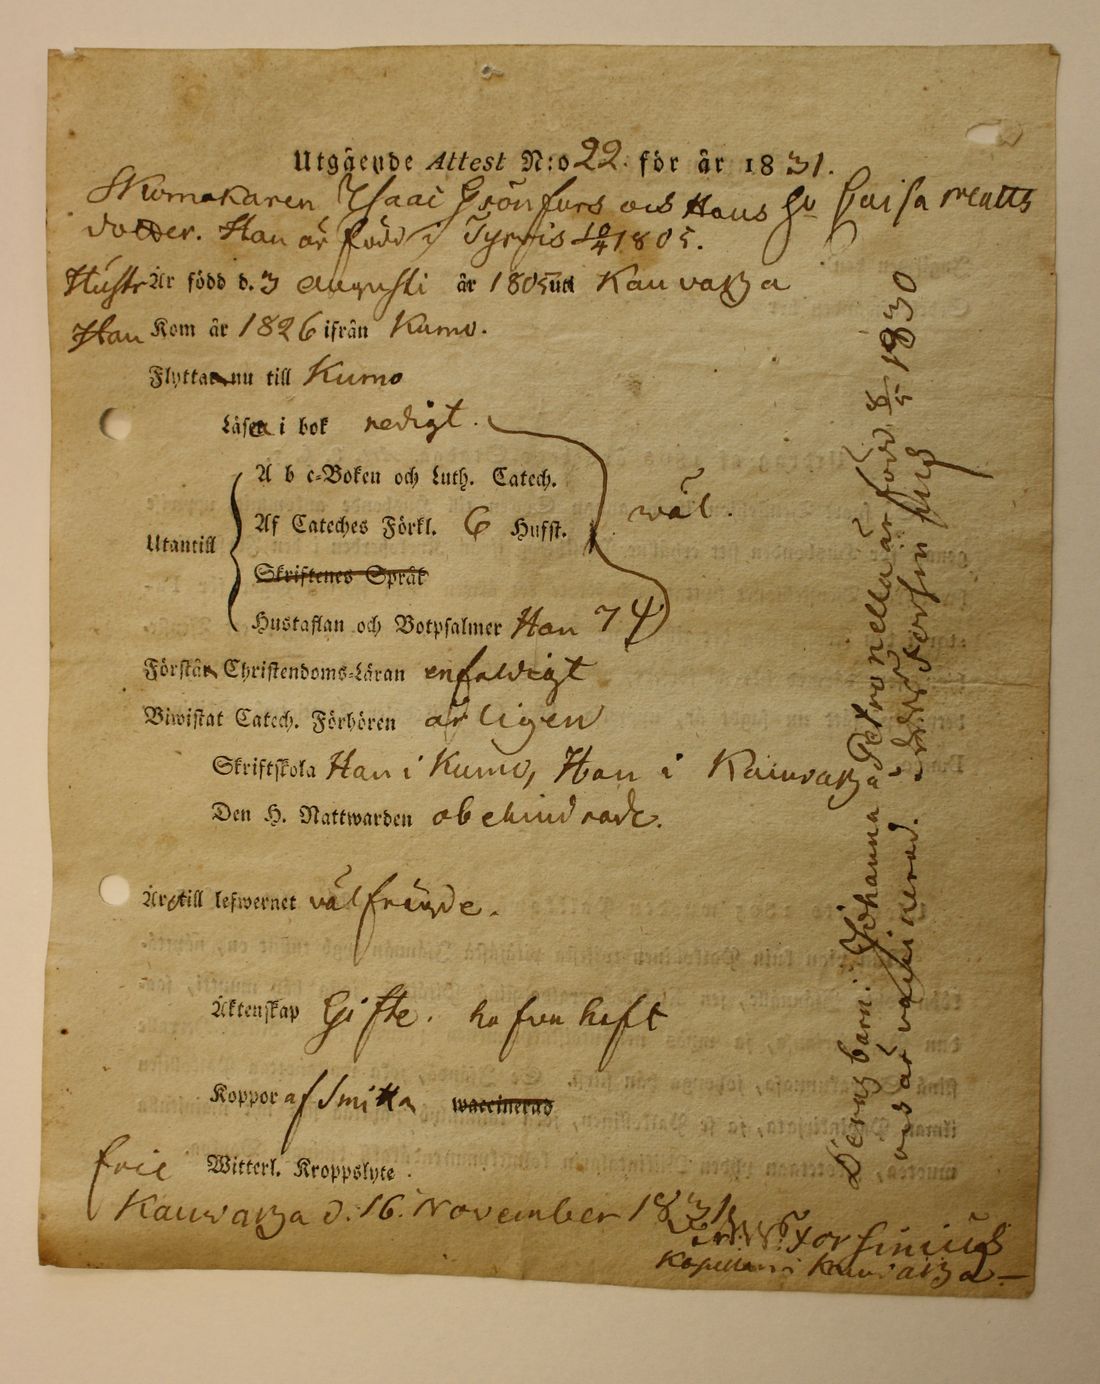 Utgående Attest N:o 22. för år 1831.
Skomakaren Isaac Grönfors och Hans Hu Caisa Matts
dotter. Han är född i Tyrvis 10/4 1805.
Hustr Är född d. 3 augusti år 1805 uti Kauvatza
Han Kom år 1826 ifrån Kumo.
Flyttar nu till Kumo
Läsa i bok redigt.
A b c-Boken och Luth. Catech.
Af Cateches Förkl. 6 Hufst. wäl.
Utantill
Skriftenes Språk
Hustaflan och Botpsalmer Han 7 4
Förstår Christendoms-Läran enfaldigt
Biwistat Catech. Förhören årligen
Skriftskola Han i Kumo, Hon i Kauvatza
Den H. Nattwarden obehindrade.
Är till lefwernet välfräjde.
Äktenskap Gifte. hafva haft
Koppor af Smitta waccinerad
frie Witterl. Kroppslyte.
Kauvatza d. 16. November 1831.
Forsinius
Kapellan i Kauvatza
Deras barn: Johanna Petronella är född 8/5 1830
och är vaccinerad. Forsinius